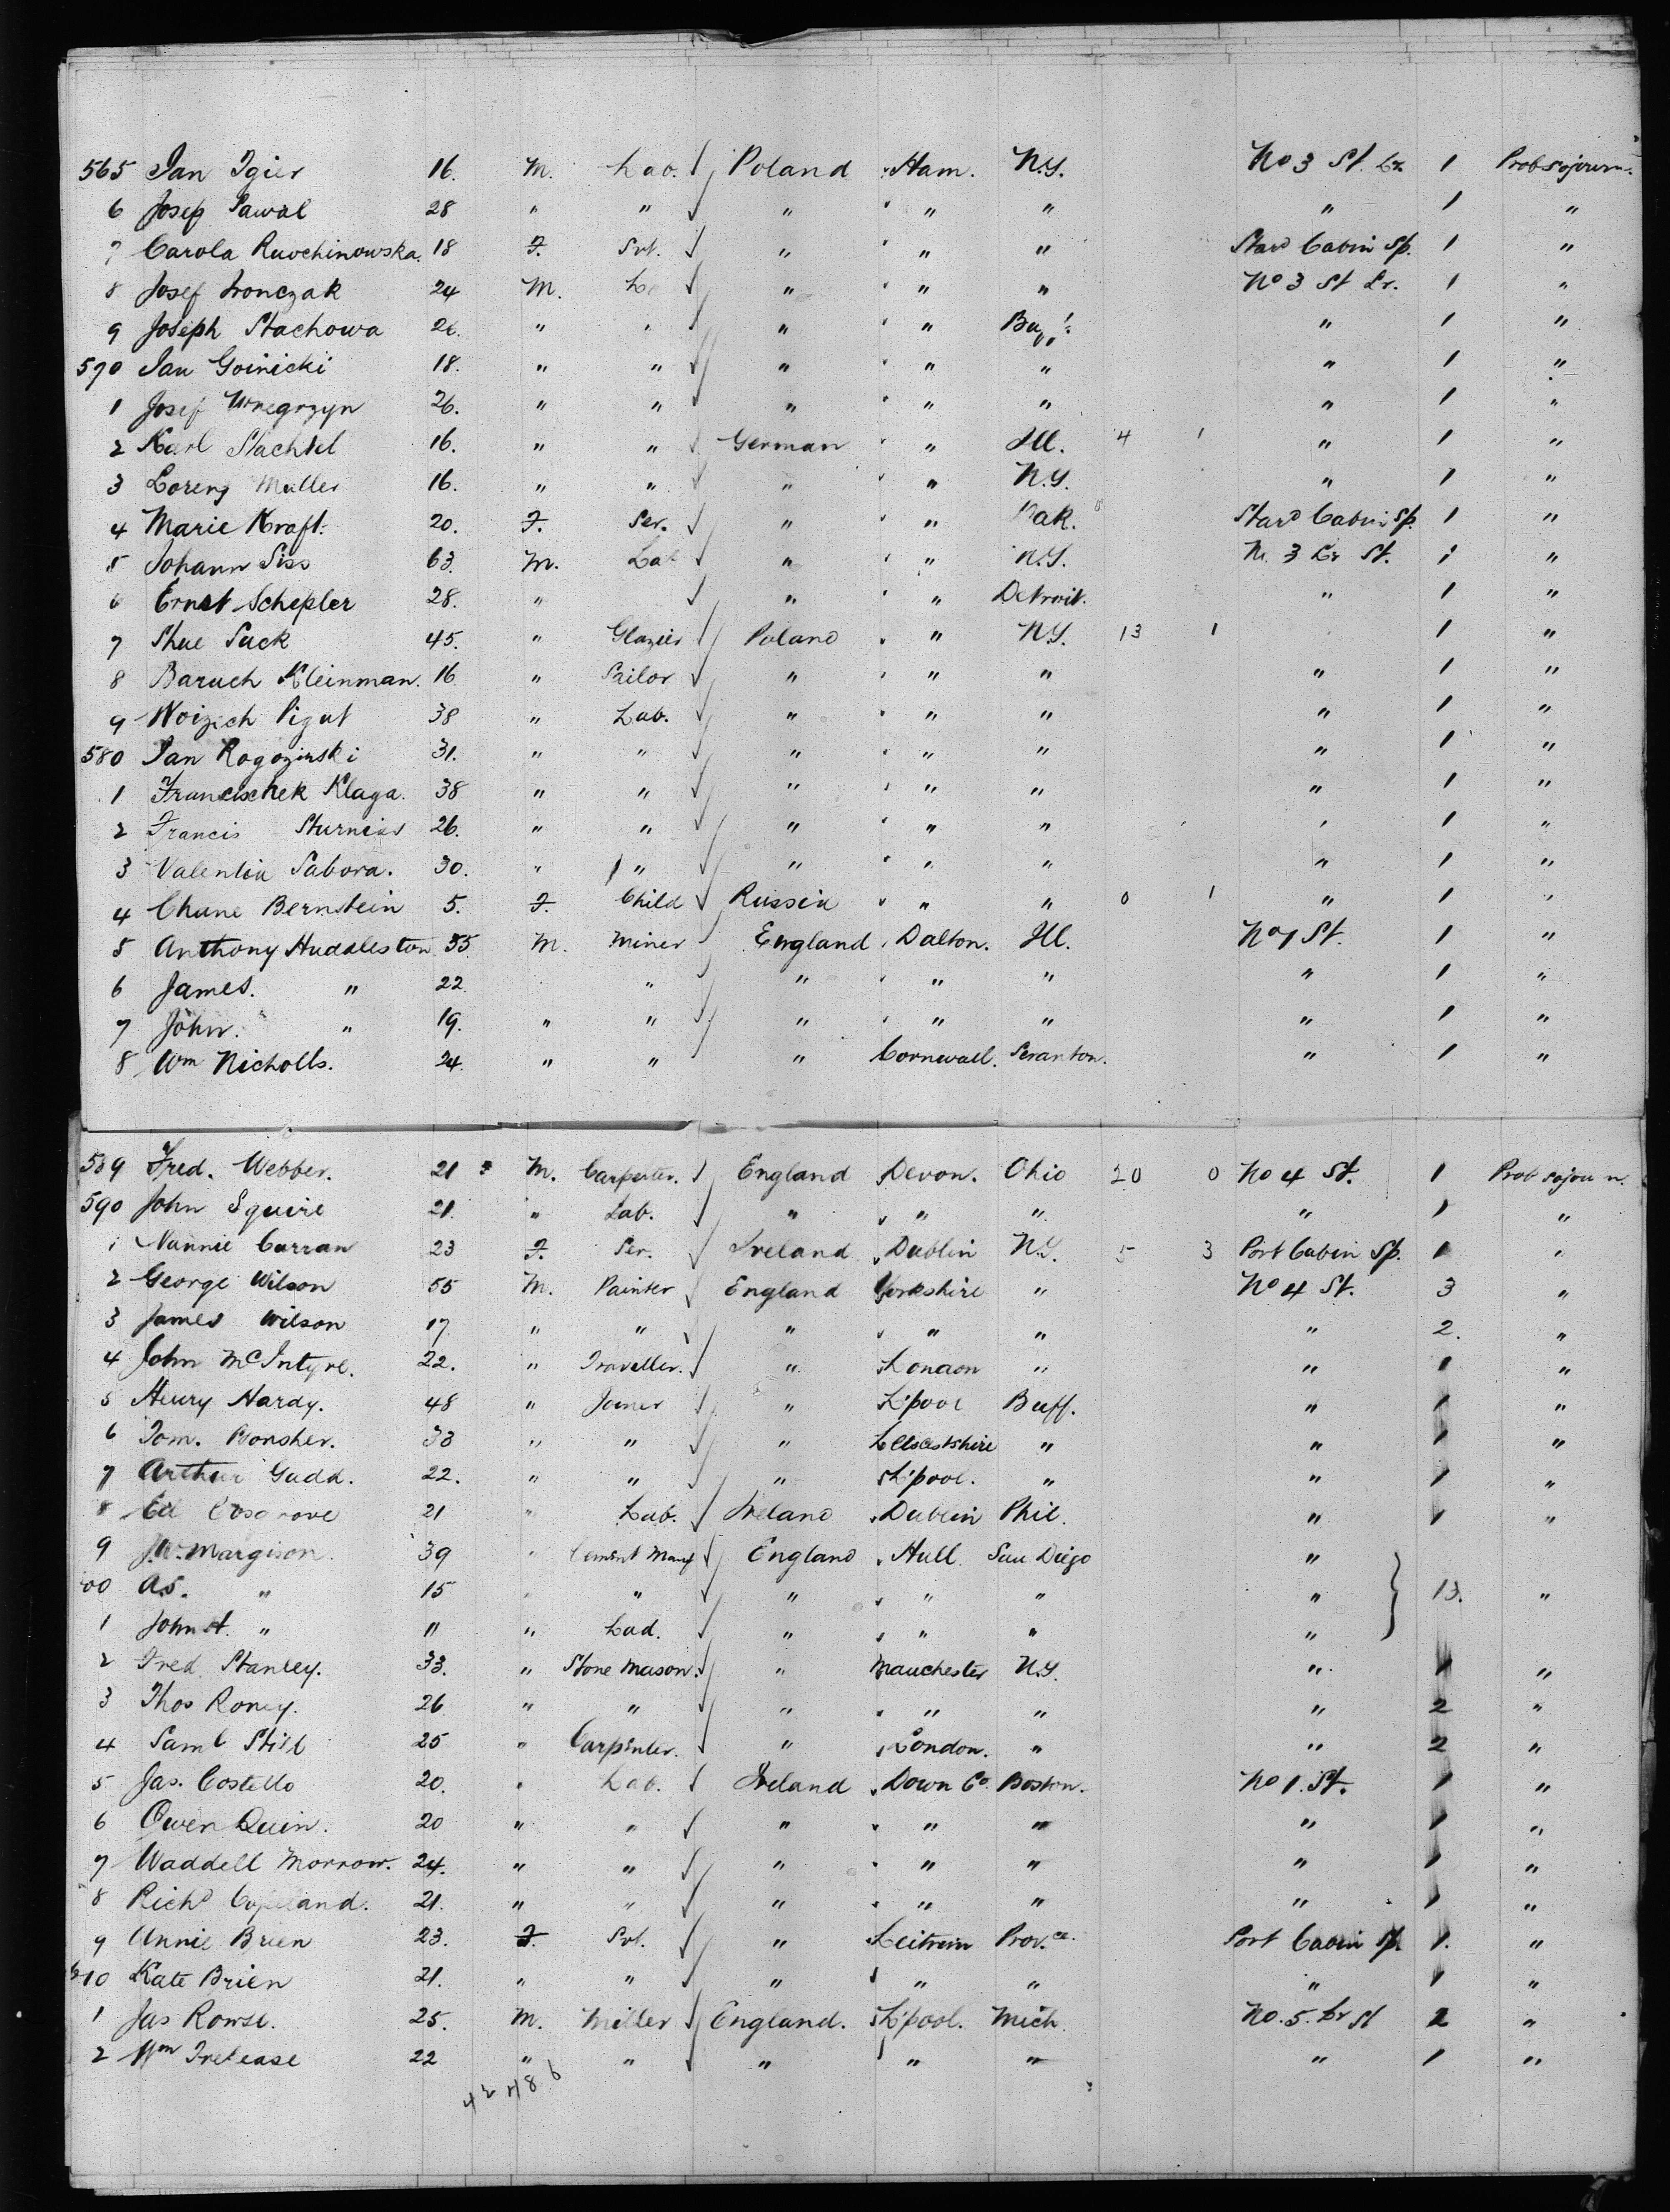 565 Jan Igier 16. M. Lab. Poland Ham. N.Y. No 3 St. Lr. 1 Prob sojourn.
6 Josef Pawal 28 " " " " " " 1 "
7 Carola Ruochinowska. 18 F. Svt. " " " Starb Cabin Sp. 1 "
8 Josef Fronczak 24 M. " " " No 3 St Lr. 1 "
9 Joseph Stachowa 26. " " " " " 1 "
570 Jan Goinicki 18. " " " " " " 1 "
1 Josef Wnegrzyn 26. " " " " " " 1 "
2 Karl Stachtel 16. " " German " Ill. 4 1 " 1 "
3 Lorenz Muller 16. " " " " N.Y. " 1 "
4 Marie Kraft. 20. F. Ser. " " Dak. Starb Cabin Sp. 1 "
5 Johann Siss 63. M. Lab " " N.Y. No. 3 Lr St. 1 "
6 Ernst Schepler 28. " " " Detroit. " 1 "
7 Shue Sack 45. " Glazier Poland " N.Y. 13 1 1 "
8 Baruch Kleinman. 16 " Tailor " " " " 1 "
9 Woizech Pigut 38 " Lab. " " " " 1 "
580 Jan Rogozinski 31. " " " " " " 1 "
1 Francischek Klaga. 38 " " " " " " 1 "
2 Francis 26. " " " " " " 1 "
3 Valentin Sabora. 30. " " " " " " 1 "
4 Chane Bernstein 5. F. Child Russia " " 0 1 " 1 "
5 Anthony Huddleston 55 M. Miner England Dalton. Ill. No 1 St. 1 "
6 James. " 22 " " " " " 1 "
7 John. " 19. " " " " " " 1 "
8 Wm Nicholls. 24. " " " Cornwall. Scranton. " 1 "
589 Fred. Webber. 21 M. Carpenter. England Devon. Ohio 20 0 No 4 St. 1 Prob sojou n.
590 John Squire 21. " Lab. " " " " 1 "
1 Nannie Curran 23 F. Ser. Ireland Dublin N.Y. 5 3 Port Cabin Sp. 1 "
2 George Wilson 55 M. Painter England Yorkshire " No 4 St. 3 "
3 James Wilson 17 " " " " " " 2. "
4 John McIntyre. 22. " Traveller. " London " " 1 "
5 Henry Hardy. 48 " Joiner " L'pool Buff. " 1 "
6 Tom. Bonsher. 33 " " " " " 1 "
7 Arthur Gadd. 22. " " " L'pool. " " 1 "
8 Ed Cosgrove 21 " Lab. Ireland Dublin Phil. " 1 "
9 J.W. Margison. 39 " Cement Manf England Hull. San Diego "
00 A.S. " 15 " " " " " " 13. "
1 John A. " 11 " Lad. " " " "
2 Fred. Stanley. 33. " Stone Mason. " Manchester N.Y. " 1 "
3 Thos Roney. 26 " " " " " " 2 "
4 Saml Still 25 " Carpenter. " London. " " 2 "
5 Jas. Costello 20. " Lab. Ireland Down Co. Boston. No 1. St. 1 "
6 Owen Quin. 20 " " " " " " 1 "
7 Waddell Morrow. 24. " " " " " " 1 "
8 Richd Copeland. 21. " " " " " " 1 "
9 Annie Brien 23. F. Svt. " Leitrim Prov.ce. Port Cabin Sp. 1. "
610 Kate Brien 21. " " " " " " 1 "
1 Jas Rowse. 25. M. Miller England. L'pool. Mich. No. 5. Lr St 2 "
2 Wm Trelease 22 " " " " " " 1 "